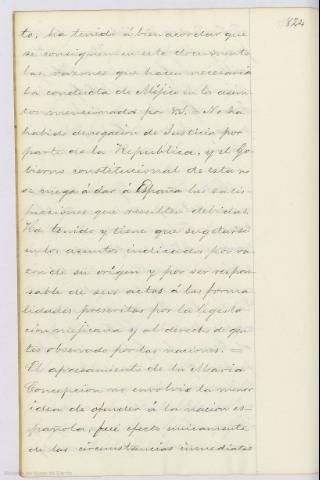 822
to, ha tenido á bien acordar que
se consignen en este documento
las razones que hacen necesaria
la conducta de Méjico en los asun-
tos mencionados por VS. - No ha
habido denegacion de Justicia por
parte de la Republica, y el Go-
bierno constitucional de esta no
se niega á dar á España las satis-
facciones que resulten debidas.
Ha tenido y tiene que sugetarse
en los asuntos indicados por ra-
zon de su origen y por ser respon-
sable de sus actos á las forma-
lidades prescritas por la legisla-
cion mejicana y al derecho de gen-
tes observado por las naciones. =
El apresamiento de la Maria
Concepcion no envolvio la menor
idea de ofender á la nacion es-
pañola; fué efecto unicamente
de las circunstancias inmediatas